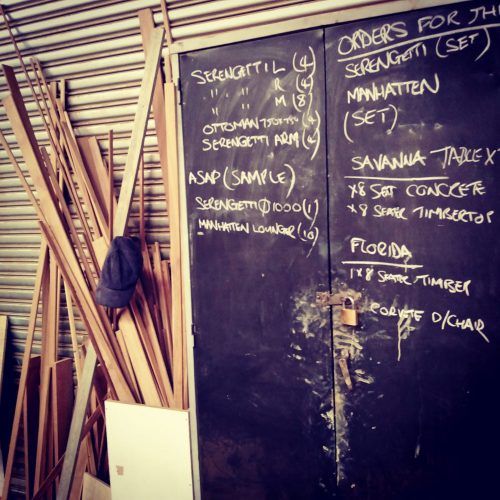 SERENGETTI L (4)
" " R (4)
" " M (8)
OTTOMAN 750x750 (4)
SERENGETTI ARM (4)
ASAP (SAMPLE)
SERENGETTI Ø1000 (1)
MANHATTEN LOUNGER (10)
ORDERS FOR
SERENGETTI (SET)
MANHATTEN
(SET)
SAVANNA TABLE X
X8 SEAT CONCRETE
X8 SEATER TIMBERTOP
FLORIDA
1X8 SEATER TIMBER
D/CHAIR